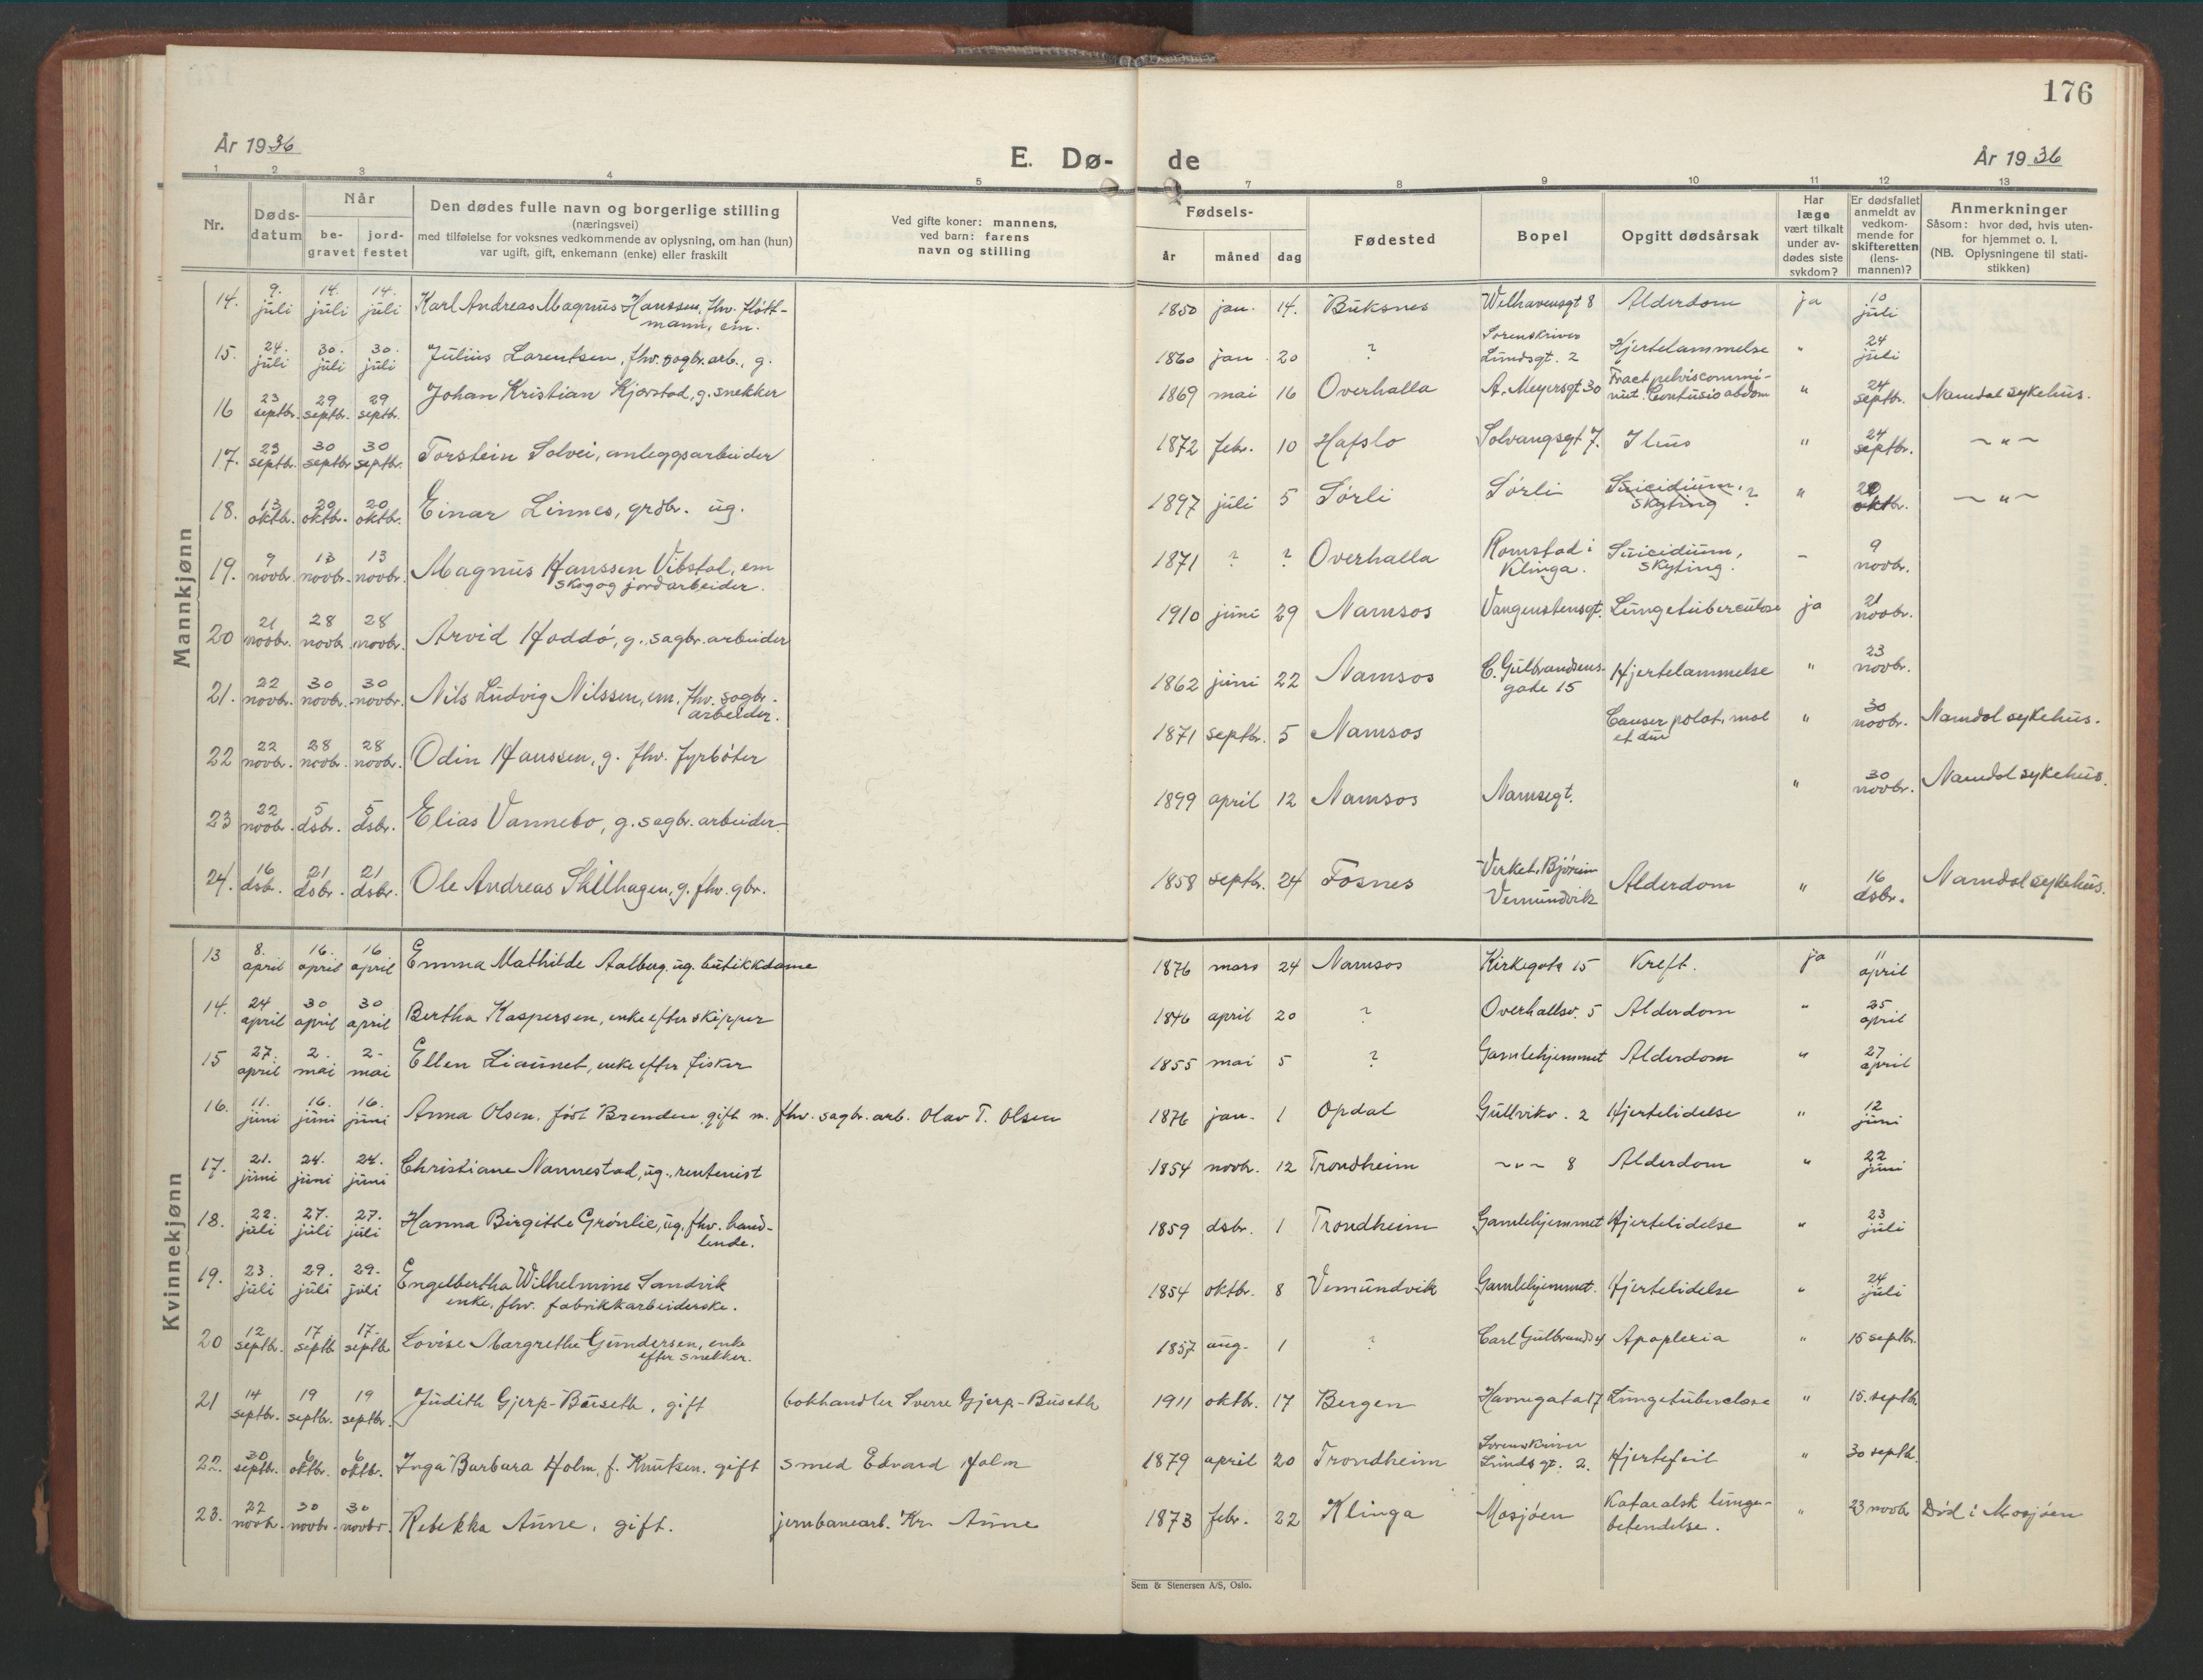 176
År 1936
E. Dø- de
År 1936
1 2 3 4 5 7 8 9 10 11 12 13
Nr.
Døds-
datum
Når
be-
gravet
jord-
festet
Den dødes fulle navn og borgerlige stilling
(næringsvei)
med tilføielse for voksnes vedkommende av oplysning, om han (hun)
var ugift, gift, enkemann (enke) eller fraskilt
Ved gifte koner: mannens,
ved barn: farens
navn og stilling
Fødsels-
år måned dag
Fødested
Bopel
Opgitt dødsårsak
Har
læge
vært tilkalt
under av-
dødes siste
sykdom?
Er dødsfallet
anmeldt av
vedkom-
mende for
skifteretten
(lens-
mannen)?
Anmerkninger
Såsom: hvor død, hvis uten-
for hjemmet o. l.
(NB. Oplysningene til stati-
stikken)
Mannkjønn
14. 9. juli 14. juli 14. juli Karl Andreas Magnus Hanssen, fhv. fløtt-
mann, em. 1850 jan. 14. Buksnes Welhavensgt 8 Alderdom ja 10 juli
15. 24. juli 30. juli 30. juli Julius Lorentsen, fhv. sagbr.arb., g. 1860 jan 20 ? Sorenskriver
Lundsgt. 2 Hjertelammelse " 24 juli
16 23 septbr. 29 septbr. 29 septbr. Johan Kristian Kjørstad, g. snekker 1869 mai 16 Overhalla A. Meyersgt 30 Fract pelvis commi-
nut. Contusio abdom " 24 septbr. Namdal sykehus.
17. 23 septbr. 30 septbr 30 septbr. Torstein Solvei, anleggsarbeider 1872 febr. 10 Hafslo Solvangsgt 7. Ileus " 24 septbr. ~ " ~
18. 13 oktbr. 20 oktbr. 20 oktbr. Einar Linnes, grdbr. ug. 1897 juli 5 Sørli Sørli Suicidium,
skyting ? " 20 oktbr. ~ " ~
19. 9 novbr. 13 novbr. 13 novbr. Magnus Hanssen Vibstol, em
skog og jordarbeider. 1871 ? ? Overhalla Romstad i
Klinga. Suicidium,
skyting. - 9 novbr.
20 21 novbr. 28 novbr 28 novbr. Arvid Hoddø, g. sagbr. arbeider 1910 juni 29 Namsos Vangenstensgt. Lungetuberculose ja 21 novbr.
21. 22 novbr. 30 novbr. 30 novbr. Nils Ludvig Nilssen, em. fhv. sagbr.
arbeider. 1862 juni 22 Namsos C. Gulbrandsens-
gade 15 Hjertelammelse " 23 novbr.
22 22 novbr. 28 novbr. 28 novbr. Odin Hanssen, g. fhv. fyrbøter 1871 septbr. 5 Namsos Cancer palat. mol
et dur " 30 novbr. Namdal sykehus.
23 22 novbr. 5 dsbr. 5 dsbr. Elias Vannebo, g. sagbr. arbeider 1899 april 12 Namsos Namsegt. " 30 novbr. Namdal sykehus.
24. 16 dsbr. 21 dsbr. 21 dsbr. Ole Andreas Skillhagen, g. fhv. gbr. 1858 septbr. 24 Fosnes Verket, Bjørum
Vemundvik Alderdom " 16 dsbr. Namdal sykehus.
Kvinnekjønn
13 8. april 16. april 16 april Emma Mathilde Aalberg. ug. butikkdame 1876 mars 24 Namsos Kirkegata 15 Kreft. ja 11 april
14. 24 april 30 april 30 april Bertha Kaspersen, enke efter skipper 1846 april 20 ? Overhallsv. 5 Alderdom " 25 april
15 27. april 2. mai 2. mai Ellen Liaunet, enke efter fisker 1855 mai 5 ? Gamlehjemmet Alderdom " 27 april
16. 11. juni 16. juni 16. juni Anna Olsen, født Brenden, gift m. fhv. sagbr. arb. Olav T. Olsen 1876 jan. 1 Opdal Gullvikv. 2 Hjertelidelse " 12 juni
17. 21. juni 24. juni 24. juni Christiane Nannestad, ug., rentenist 1854 novbr. 12 Trondheim ~ " ~ 8 Alderdom " 22 juni
18. 22. juli 27. juli 27. juli Hanna Birgitte Grønlie, ug. fhv. hand-
lende. 1859 dsbr. 1 Trondheim Gamlehjemmet Hjertelidelse " 23 juli
19. 23. juli 29. juli 29. juli Engelbertha Wilhelmine Sandvik
enke, fhv. fabrikkarbeiderske. 1854 oktbr. 8 Vemundvik Gamlehjemmet. Hjertelidelse " 24 juli
20 12 septbr. 17 septb 17. septbr Lovise Margrethe Gundersen, enke
efter snekker. 1857 aug. 1 ? Carl Gulbrands 4 Apoplexia " 15 septbr.
21 14 septbr. 19 septbr. 19 septbr. Judith Gjerp-Buseth, gift bokhandler Sverre Gjerp-Buseth 1911 oktbr. 17 Bergen Havnegata 17 Lungetuberclose " 15. septbr
22. 30 septbr. 6 oktbr. 6 oktbr. Inga Barbara Holm, f. Knutsen. gift smed Edvard Holm 1879 april 20 Trondheim Sorenskriver
Lunds gt. 2. Hjertefeil " 30 septb.
23. 22 novbr. 30 novbr. 30 novbr. Rebekka Aune, gift. jernbanearb. Kr. Aune 1873 febr. 22 Klinga Mosjøen Kataralsk lunge-
betendelse. " 23 novbr Død i Mosjøen
Sem & Stenersen A/S, Oslo.